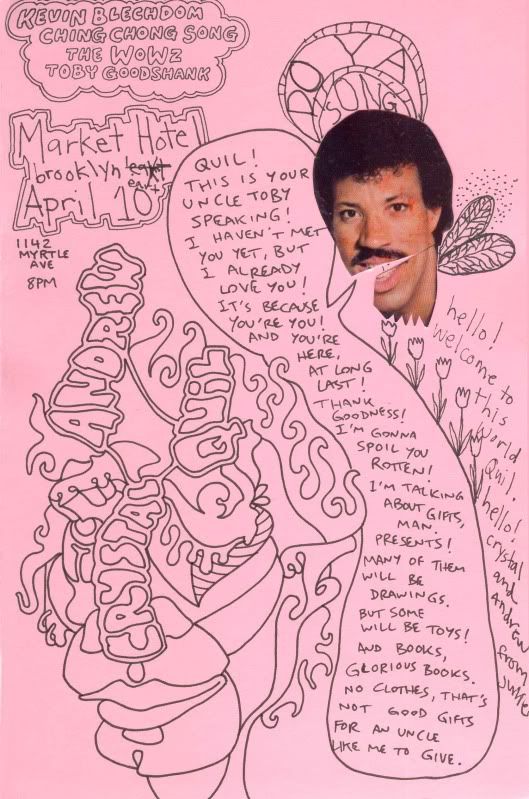 KEVIN BLECHDOM
CHING CHONG SONG
THE WoWz
TOBY GOODSHANK
Market Hotel
brooklyn
April 10
1142
MYRTLE
AVE
8PM
ROYA
SUNG
QUIL!
THIS IS YOUR
UNCLE TOBY
SPEAKING!
I HAVEN'T MET
YOU YET, BUT
I ALREADY
LOVE YOU!
IT'S BECAUSE
YOU'RE YOU!
AND YOU'RE
HERE,
AT LONG
LAST!
THANK
GOODNESS!
I'M GONNA
SPOIL YOU
ROTTEN!
I'M TALKING
ABOUT GIFTS,
MAN.
PRESENTS!
MANY OF THEM
WILL BE
DRAWINGS.
BUT SOME
WILL BE TOYS!
AND BOOKS,
GLORIOUS BOOKS.
NO CLOTHES, THAT'S
NOT GOOD GIFTS
FOR AN UNCLE
LIKE ME TO GIVE.
hello!
welcome to
this
world
Quil.
hello!
crystal
and
Andrew
from
ANDREW
QUIL
CRYSTAL